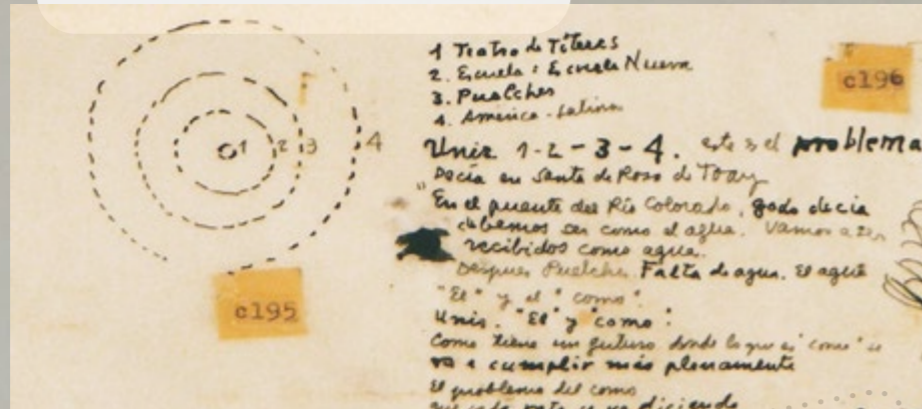 1 2 3 4
1 Teatro de Títeres
2. Escuela: Escuela Nueva
3. Puelches
4. América-Latina
c196
Unir 1-2-3-4. este es el problema
Decía en Santa de Rosa de Toay
"En el puente del Río Colorado, godo decía
debemos ser como el agua. Vamos a ser
recibidos como agua.
Despues Puelches. Falta de agua. El agua
"El" y el "como".
c195
Unir. "El" y "como":
Como tiene un futuro donde lo que es "como" se
va a cumplir más plenamente
El problema del como
que cada vez se va diciendo